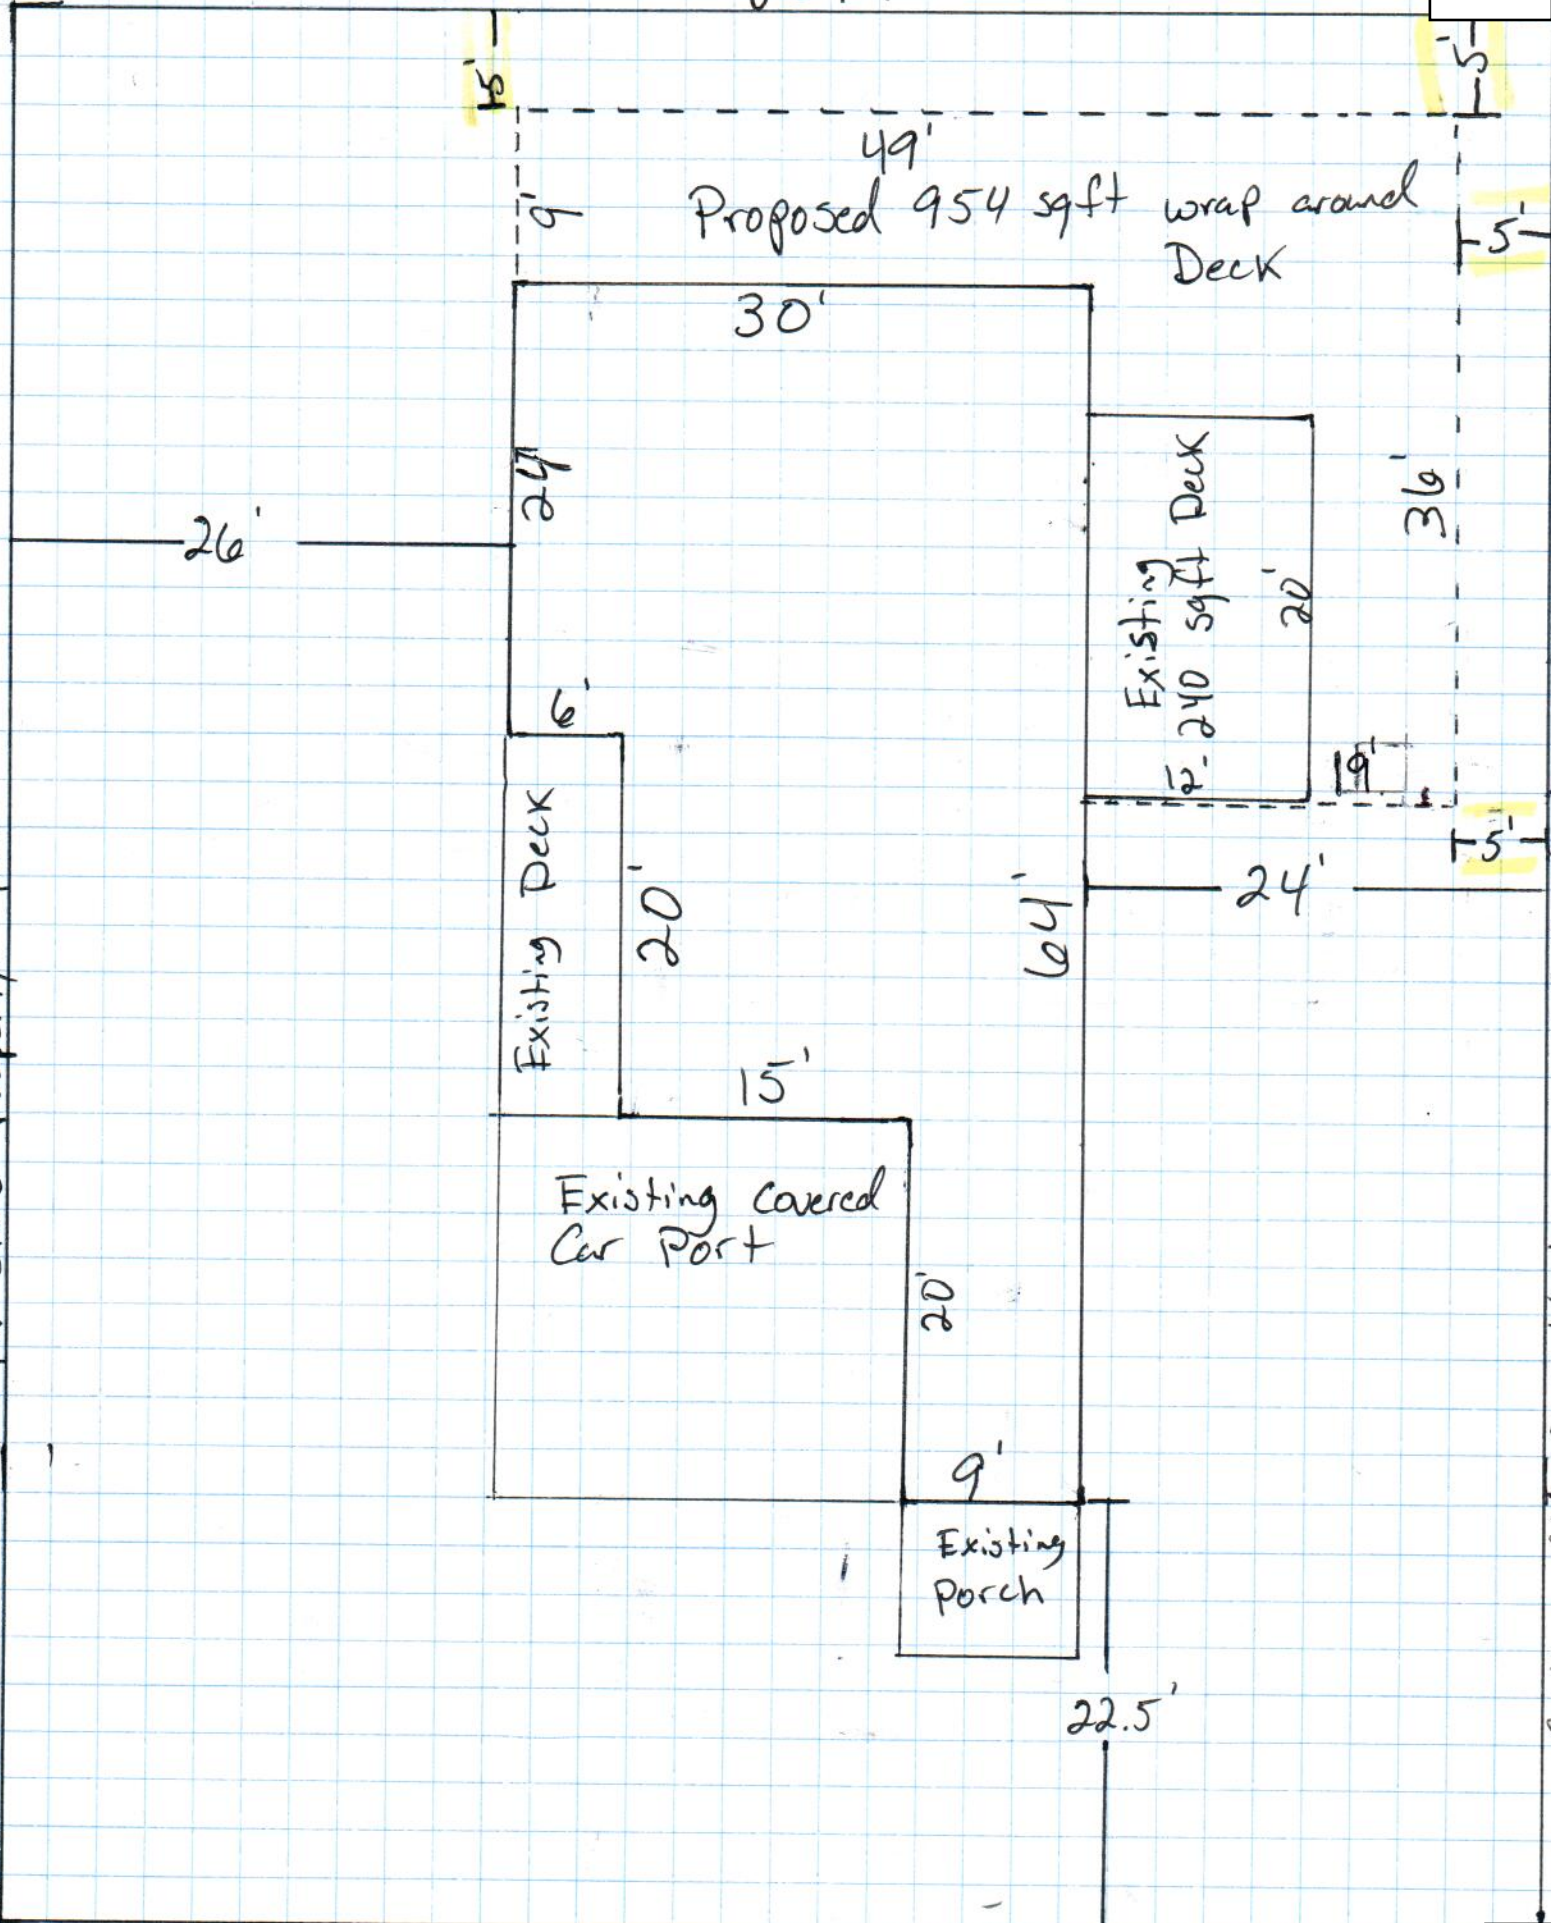 5'
5'
49'
9'
Proposed 954 sqft wrap around
Deck
5'
30'
24'
36'
Existing
240 sqft Deck
20'
26'
6'
12'
19'
5'
Existing Deck
20'
64'
24'
15'
Existing Covered
Car Port
20'
9'
Existing
Porch
22.5'